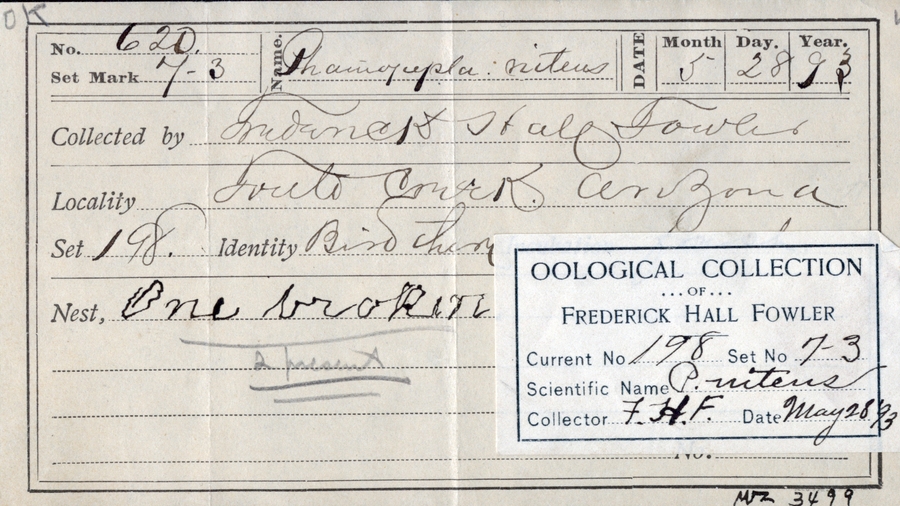 OK
No. 620.
Set Mark 7-3
Name. Phainopepla nitens
DATE Month 5 Day. 28 Year. 93
Collected by Frederick Hall Fowler
Locality Creek. Arizona
Set 198. Identity Bird
Nest, One broken
2 present
OOLOGICAL COLLECTION
...OF...
FREDERICK HALL FOWLER
Current No 198 Set No 7-3
Scientific Name P. nitens
Collector F.H.F. Date May 28 93
No.
MVZ 3499